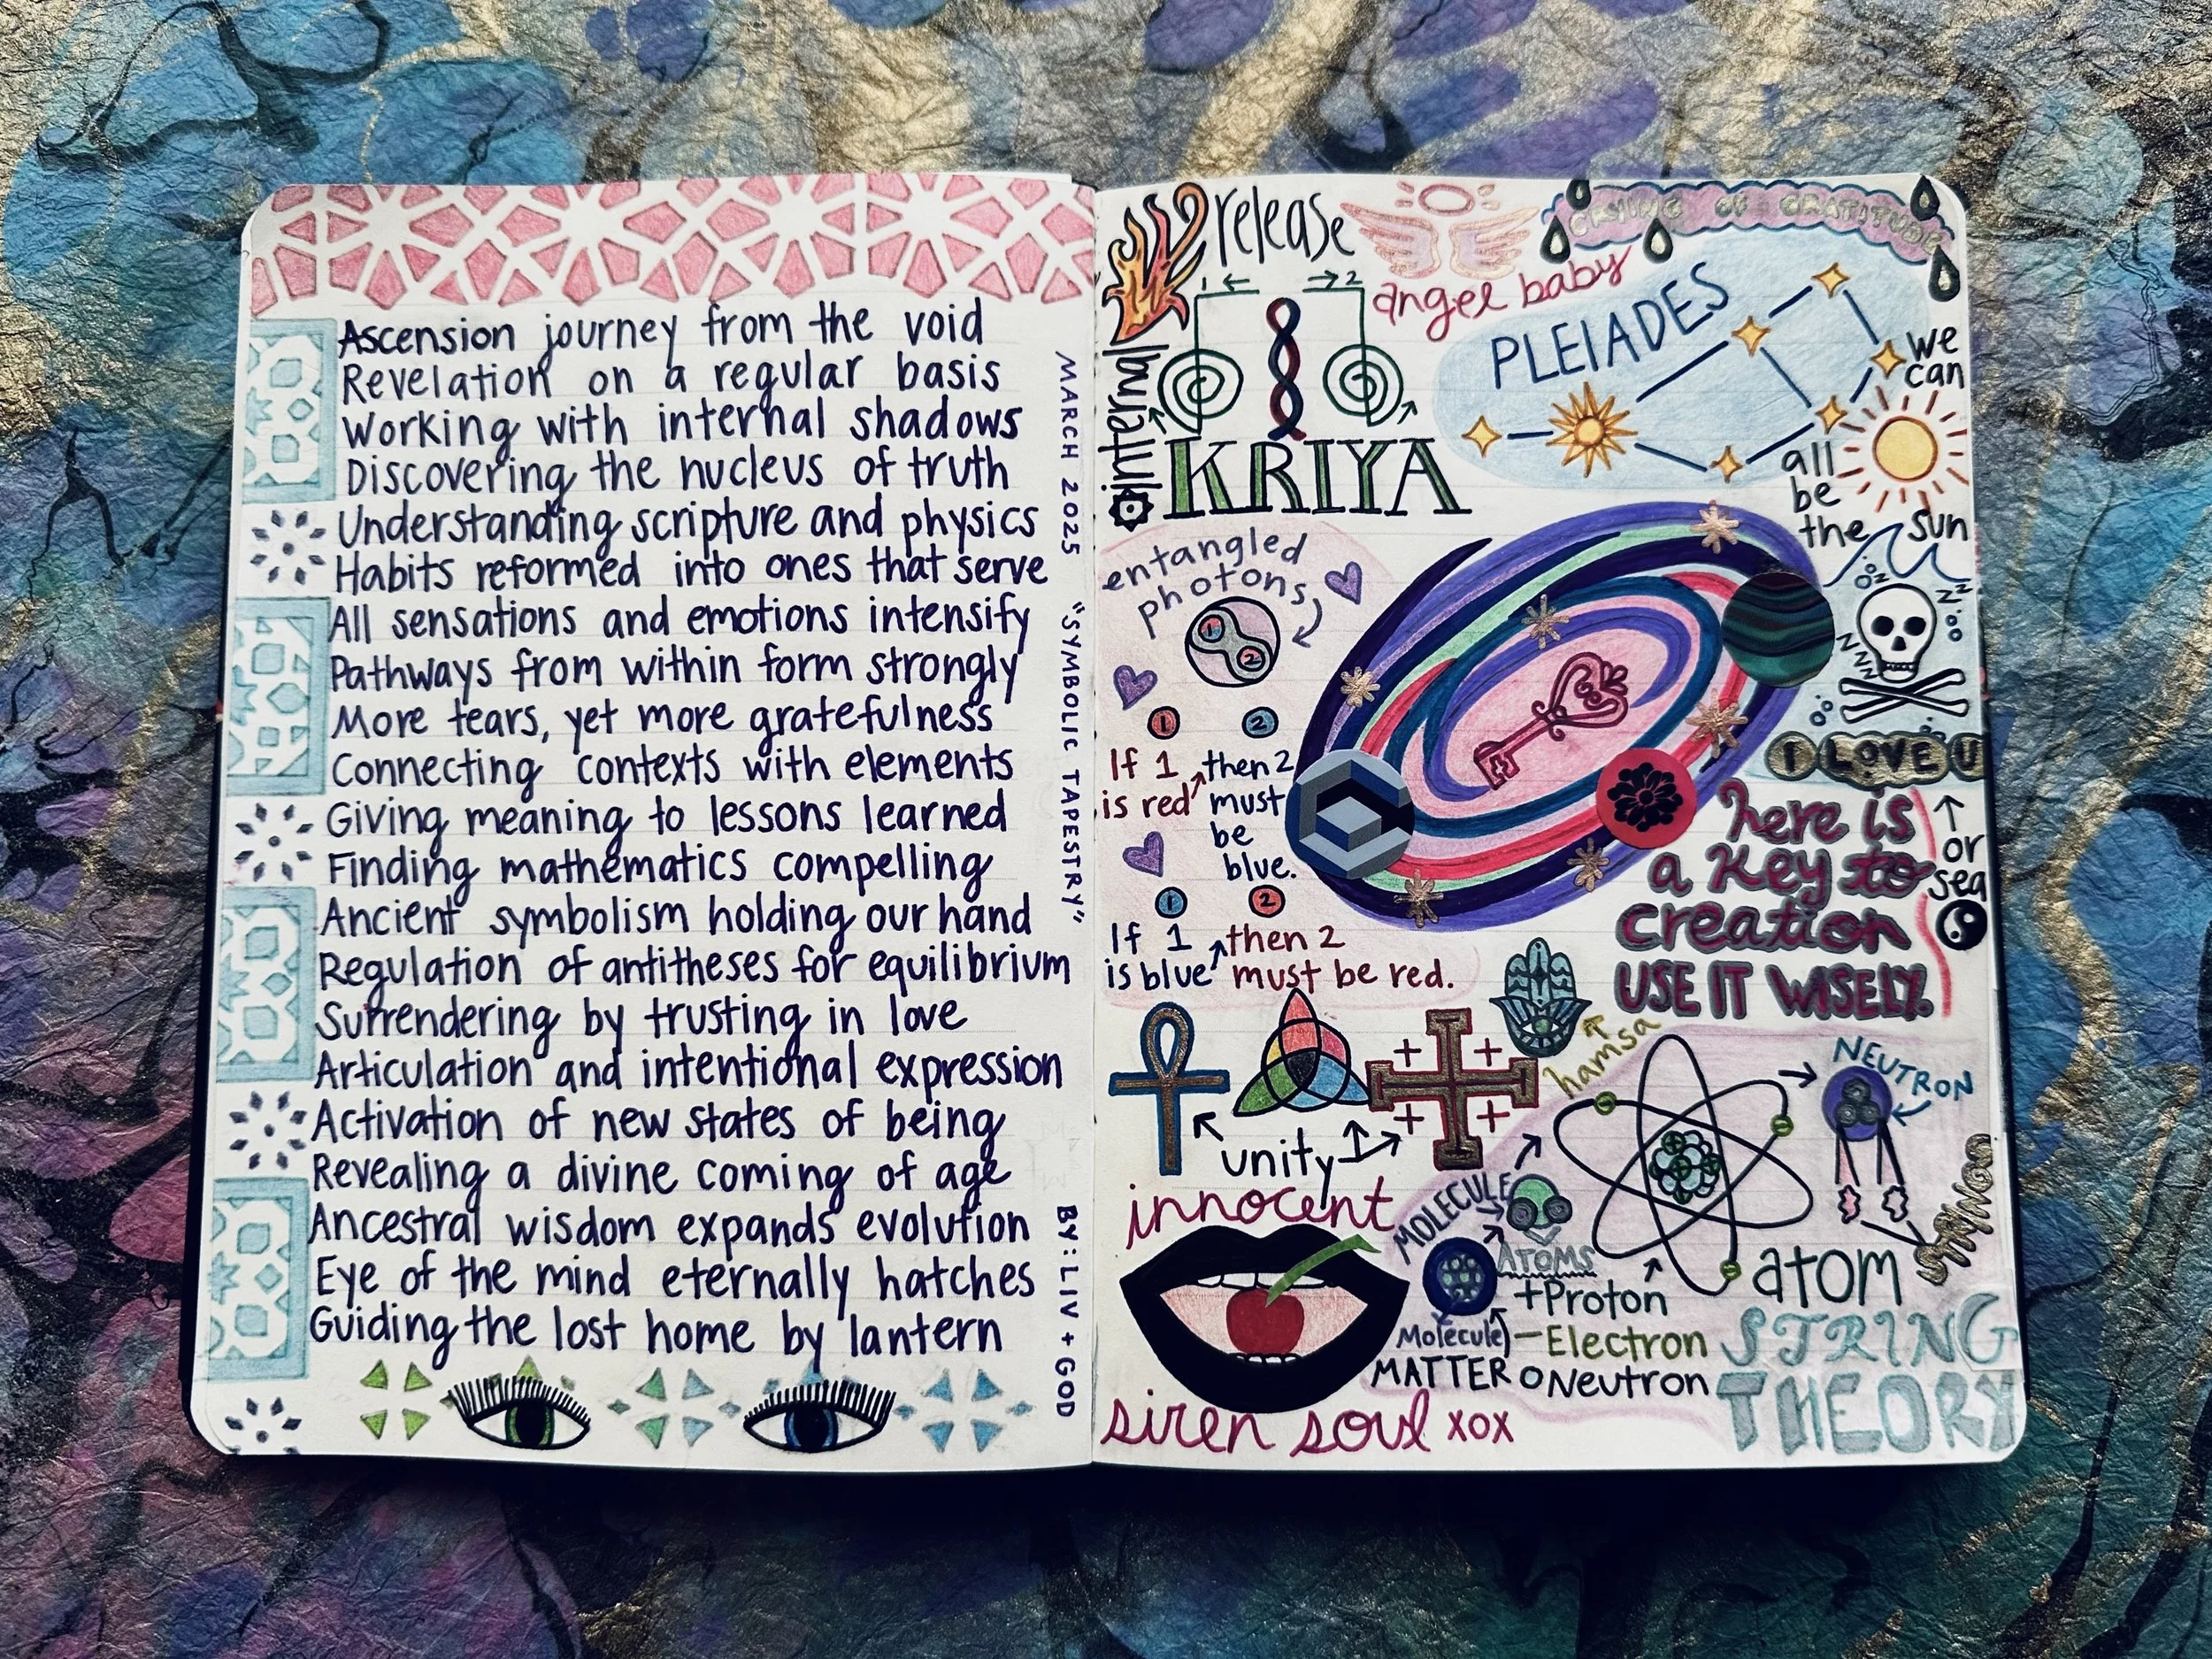 Ascension journey from the void
Revelation on a regular basis
Working with internal shadows
Discovering the nucleus of truth
Understanding scripture and physics
Habits reformed into ones that serve
All sensations and emotions intensify
Pathways from within form strongly
More tears, yet more gratefulness
Connecting contexts with elements
Giving meaning to lessons learned
Finding mathematics compelling
Ancient symbolism holding our hand
Regulation of antitheses for equilibrium
Surrendering by trusting in love
Articulation and intentional expression
Activation of new states of being
Revealing a divine coming of age
Ancestral wisdom expands evolution
Eye of the mind eternally hatches
Guiding the lost home by lantern
MARCH 2025 "SYMBOLIC TAPESTRY" BY: LIV + GOD
release
internal
1 ← → 2
KRIYA
angel baby
CRYING OF GRATITUDE
PLEIADES
we
can
all
be
the sun
entangled
photons
1
2
1 2
If 1 then 2
is red must
be
blue.
1 2
If 1 then 2
is blue must be red.
zzz
zzzz
I LOVE U
↑
or
sea
here is
a key to
creation
USE IT WISELY.
hamsa
unity
innocent
siren soul xox
MOLECULE
ATOMS
Molecule
MATTER
+Proton
−Electron
oNeutron
atom
NEUTRON
STRING
THEORY